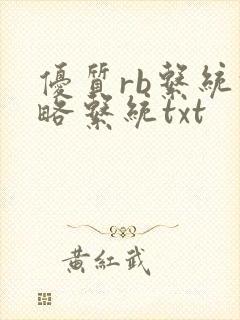 優質rb繫統
略繫統txt
黃紅武